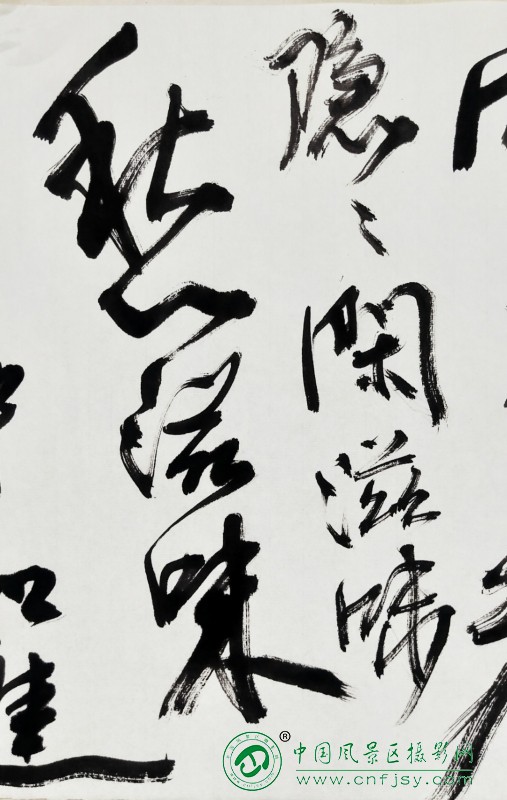 隐〻閑滋味
愁滋味
®
中国风景区摄影网
www.cnfjsy.com